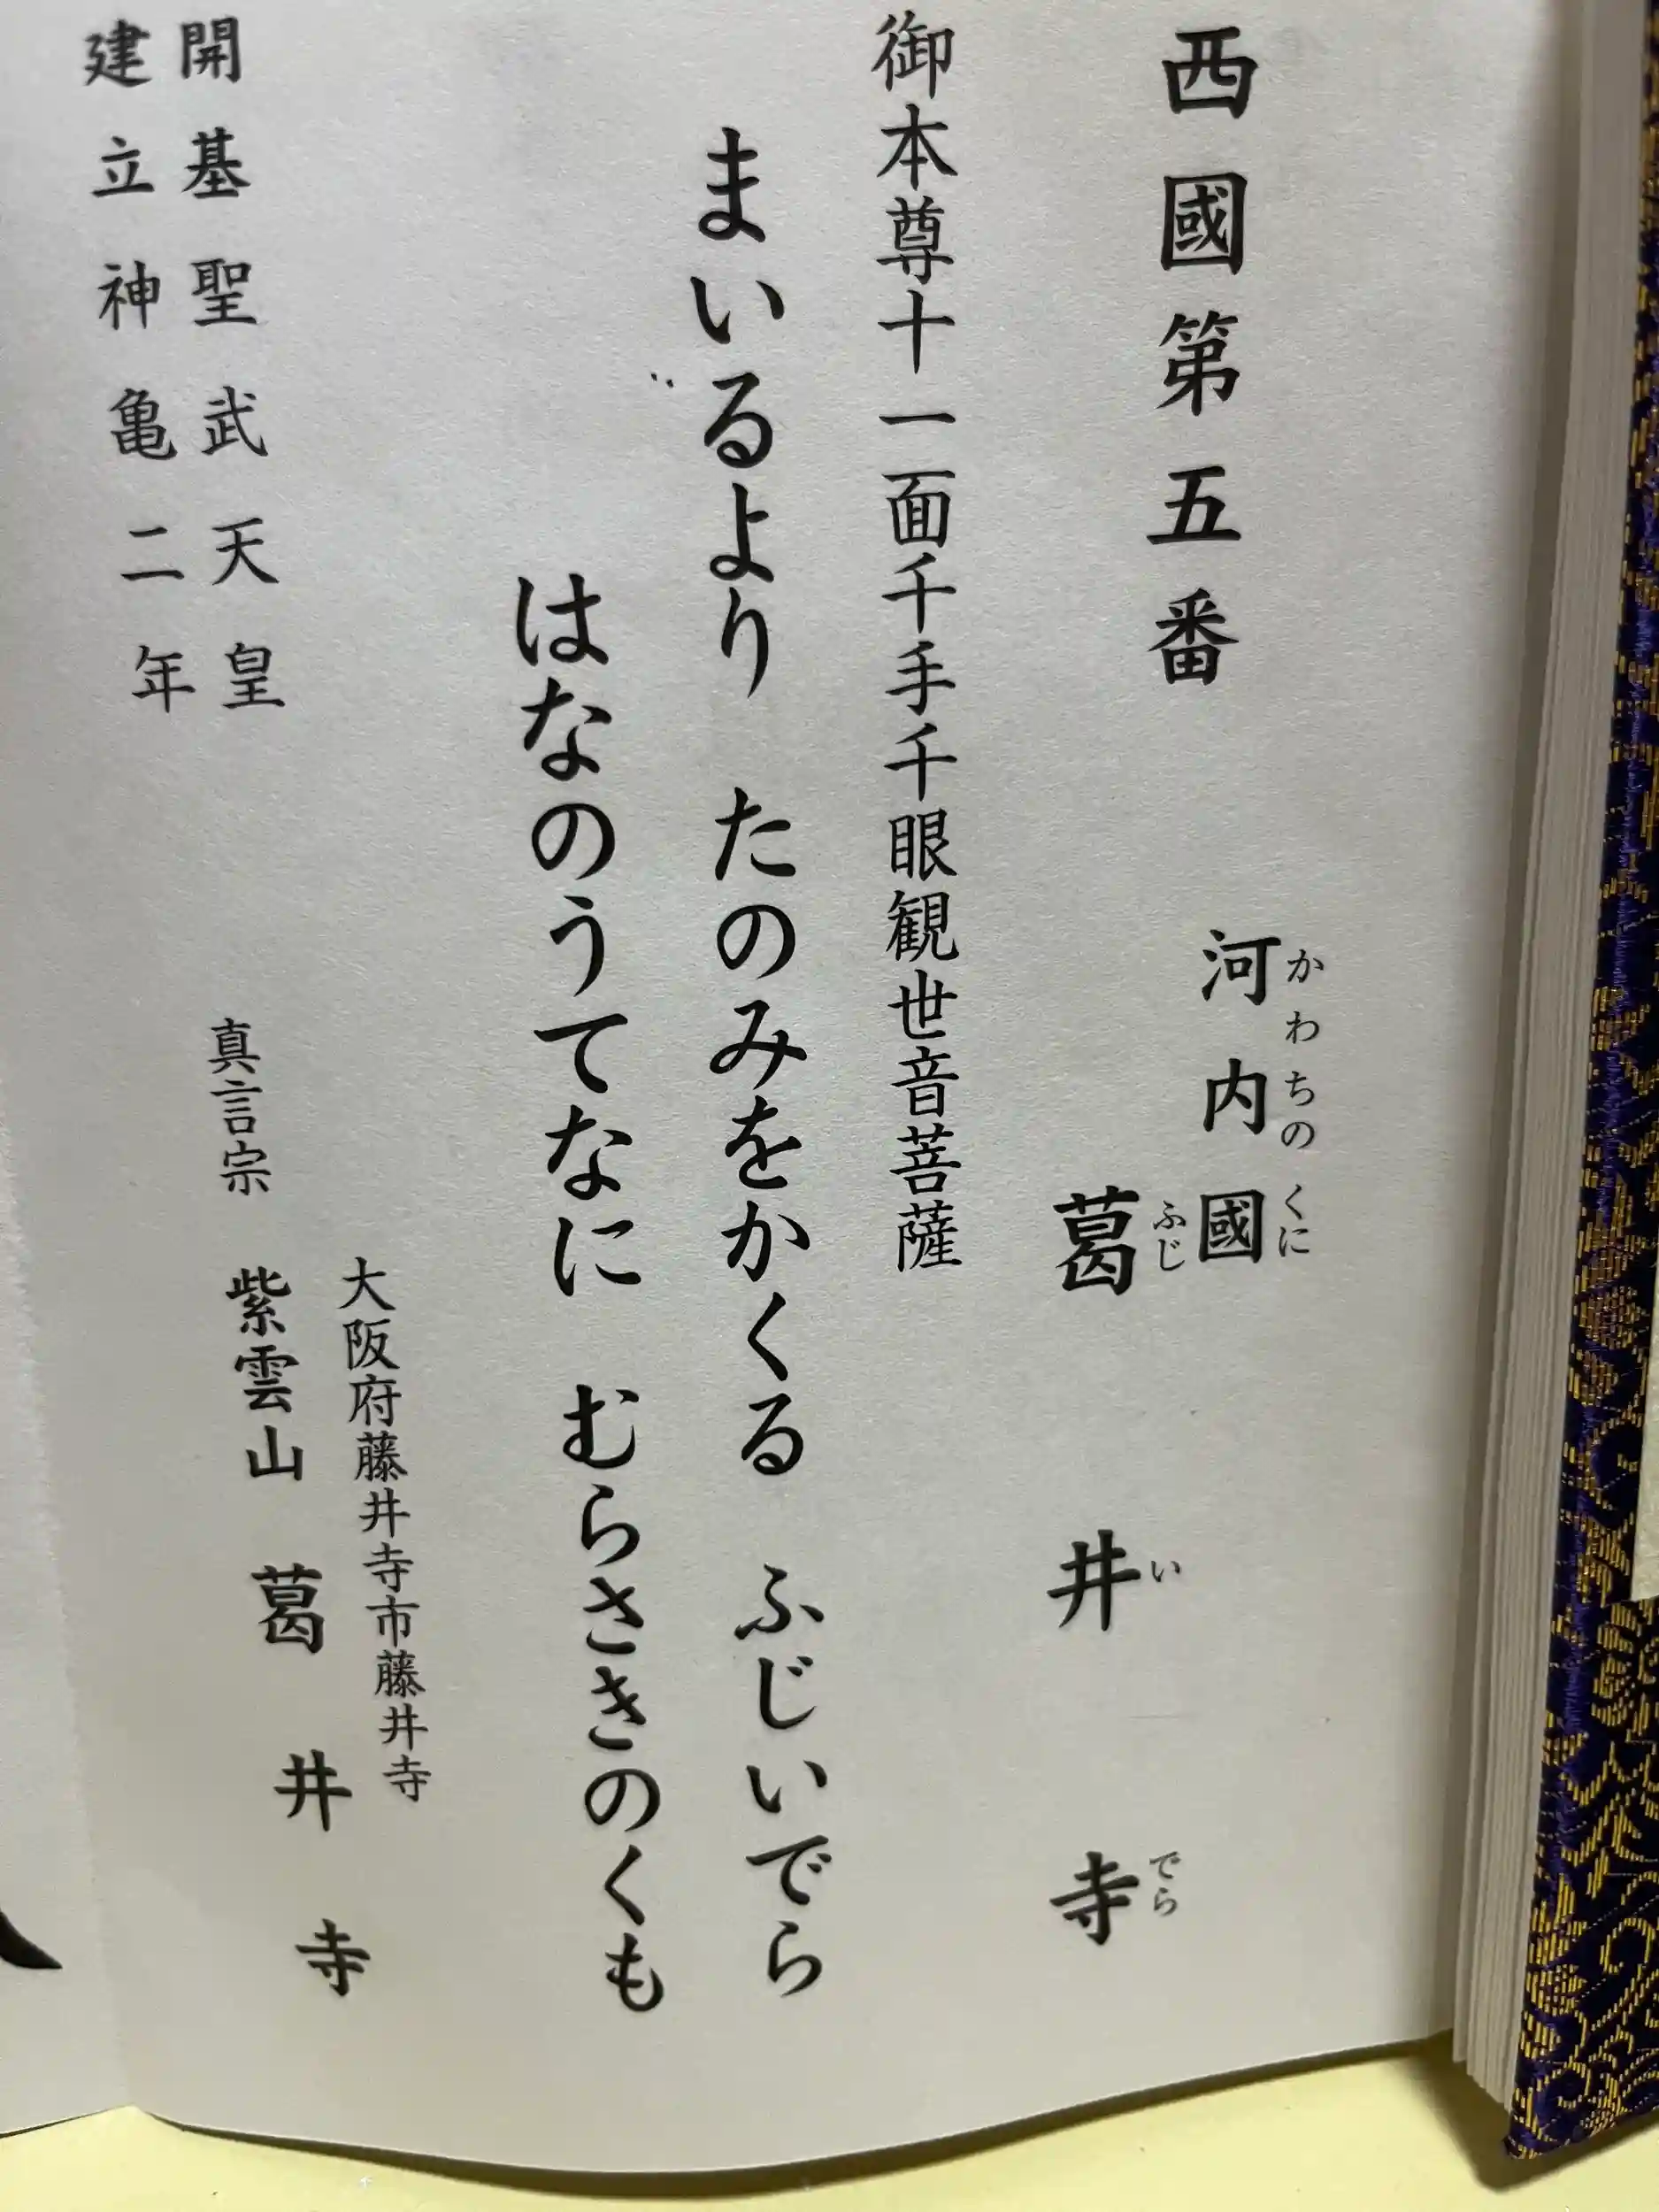 西國第五番
河内國
かわちのくに
葛井寺
ふじいでら
御本尊十一面千手千眼観世音菩薩
まいるより たのみをかくる ふじいでら
はなのうてなに むらさきのくも
大阪府藤井寺市藤井寺
真言宗 紫雲山 葛井寺
開基聖武天皇
建立神亀二年